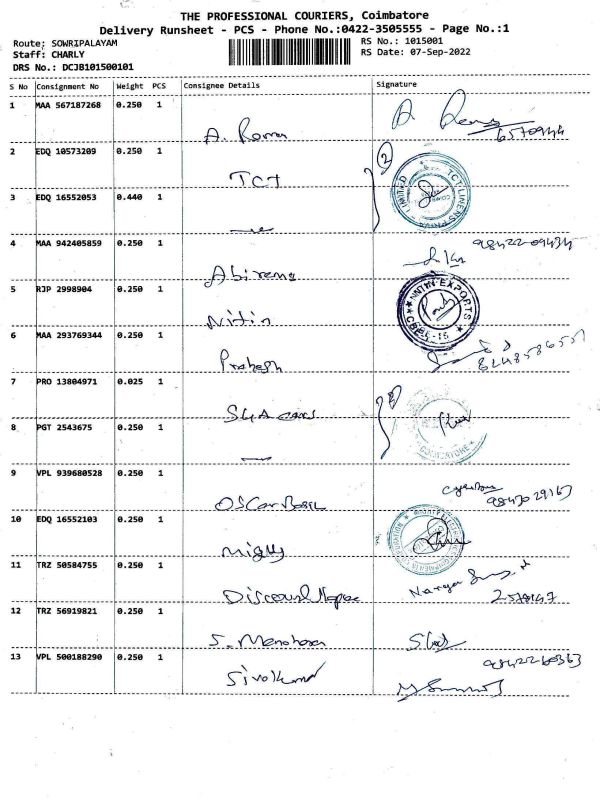 THE PROFESSIONAL COURIERS, Coimbatore
Delivery Runsheet - PCS - Phone No.:0422-3505555 - Page No.:1
Route; SOWRIPALAYAM
RS No.: 1015001
Staff: CHARLY
RS Date: 07-Sep-2022
DRS No.: DCJB101500101
S No Consignment No Weight PCS Consignee Details Signature
1 MAA 567187268 0.250 1
A. Rama
2 EDQ 10573209 0.250 1
TCT
TCT LINENS PRIVATE LIMITED
3 EDQ 16552053 0.440 1
4 MAA 942405859 0.250 1
98422 09434
Abirema
5 RJP 2998904 0.250 1
Nitin
NITIN EXPORTS CBE-15
6 MAA 293769344 0.250 1
Prakesh
7 PRO 13804971 0.025 1
S4A cars
8 PGT 2543675 0.250 1
COIMBATORE
9 VPL 939680528 0.250 1
9843029163
Oscar Basil
10 EDQ 16552103 0.250 1
Mighty
11 TRZ 50584755 0.250 1
Discount
12 TRZ 56919821 0.250 1
S. Manohara
13 VPL 500188290 0.250 1
9842260363
Sivakumar